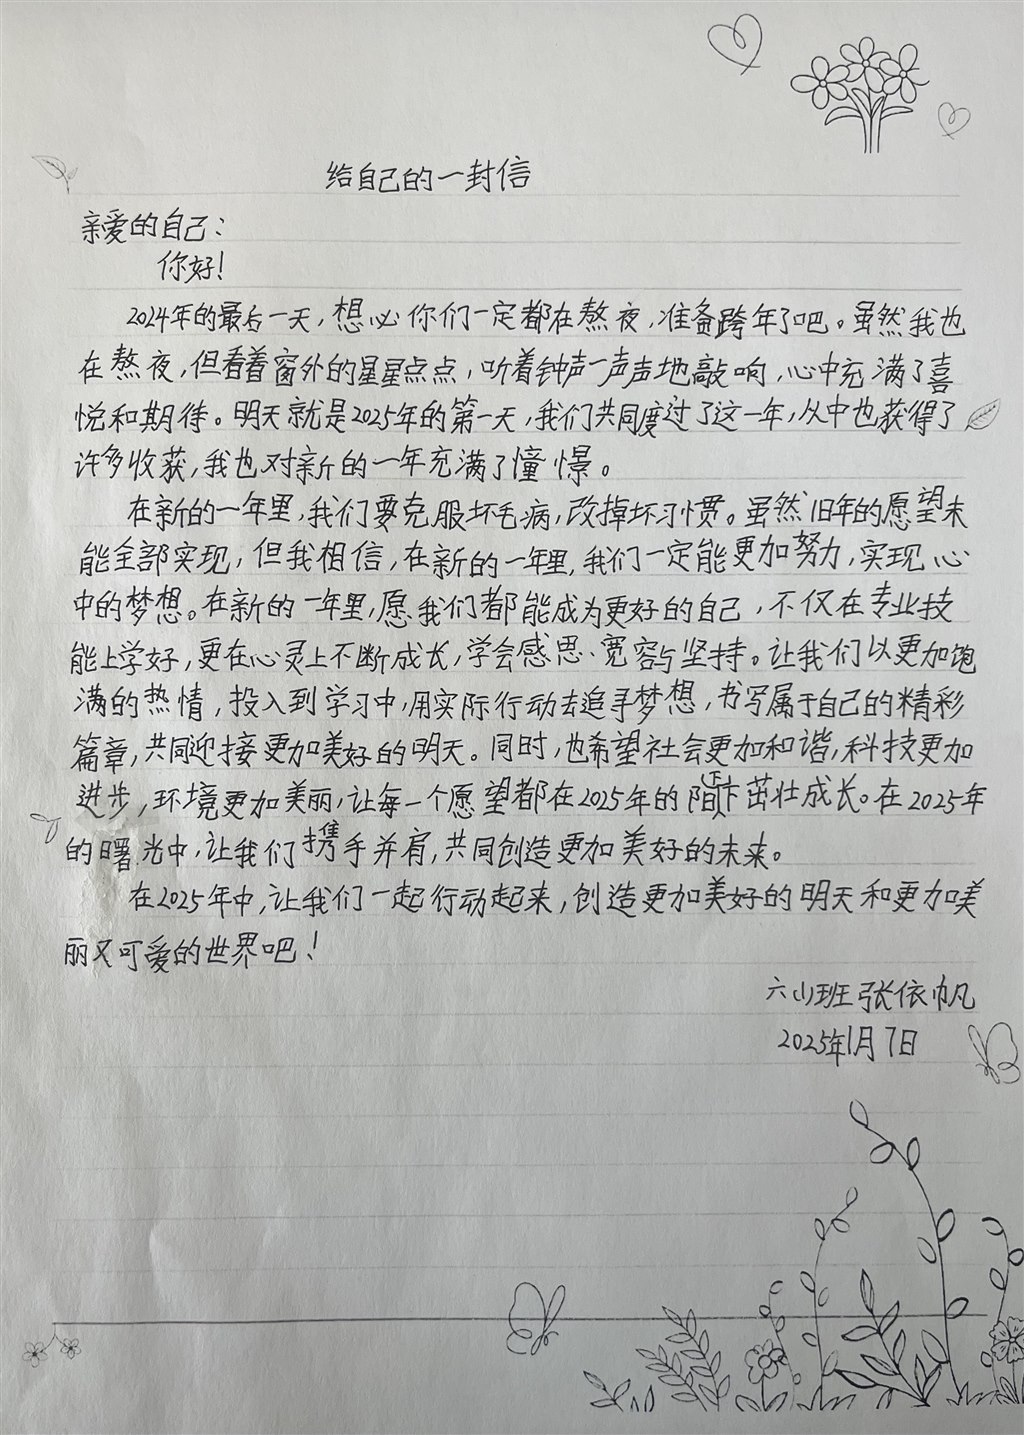 给自己的一封信
亲爱的自己：
你好！
2024年的最后一天，想必你们一定都在熬夜，准备跨年了吧。虽然我也
在熬夜，但看着窗外的星星点点，听着钟声一声声地敲响，心中充满了喜
悦和期待。明天就是2025年的第一天，我们共同度过了这一年，从中也获得了
许多收获，我也对新的一年充满了憧憬。
在新的一年里，我们要克服坏毛病，改掉坏习惯。虽然旧年的愿望未
能全部实现，但我相信，在新的一年里，我们一定能更加努力，实现心
中的梦想。在新的一年里，愿我们都能成为更好的自己，不仅在专业技
能上学好，更在心灵上不断成长，学会感思、宽容与坚持。让我们以更加饱
满的热情，投入到学习中，用实际行动去追寻梦想，书写属于自己的精彩
篇章，共同迎接更加美好的明天。同时，也希望社会更加和谐，科技更加
进步，环境更加美丽，让每一个愿望都在2025年的阳下茁壮成长。在2025年
的曙光中，让我们携手并肩，共同创造更加美好的未来。
在2025年中，让我们一起行动起来，创造更加美好的明天和更加美
丽又可爱的世界吧！
六班张依帆
2025年1月7日